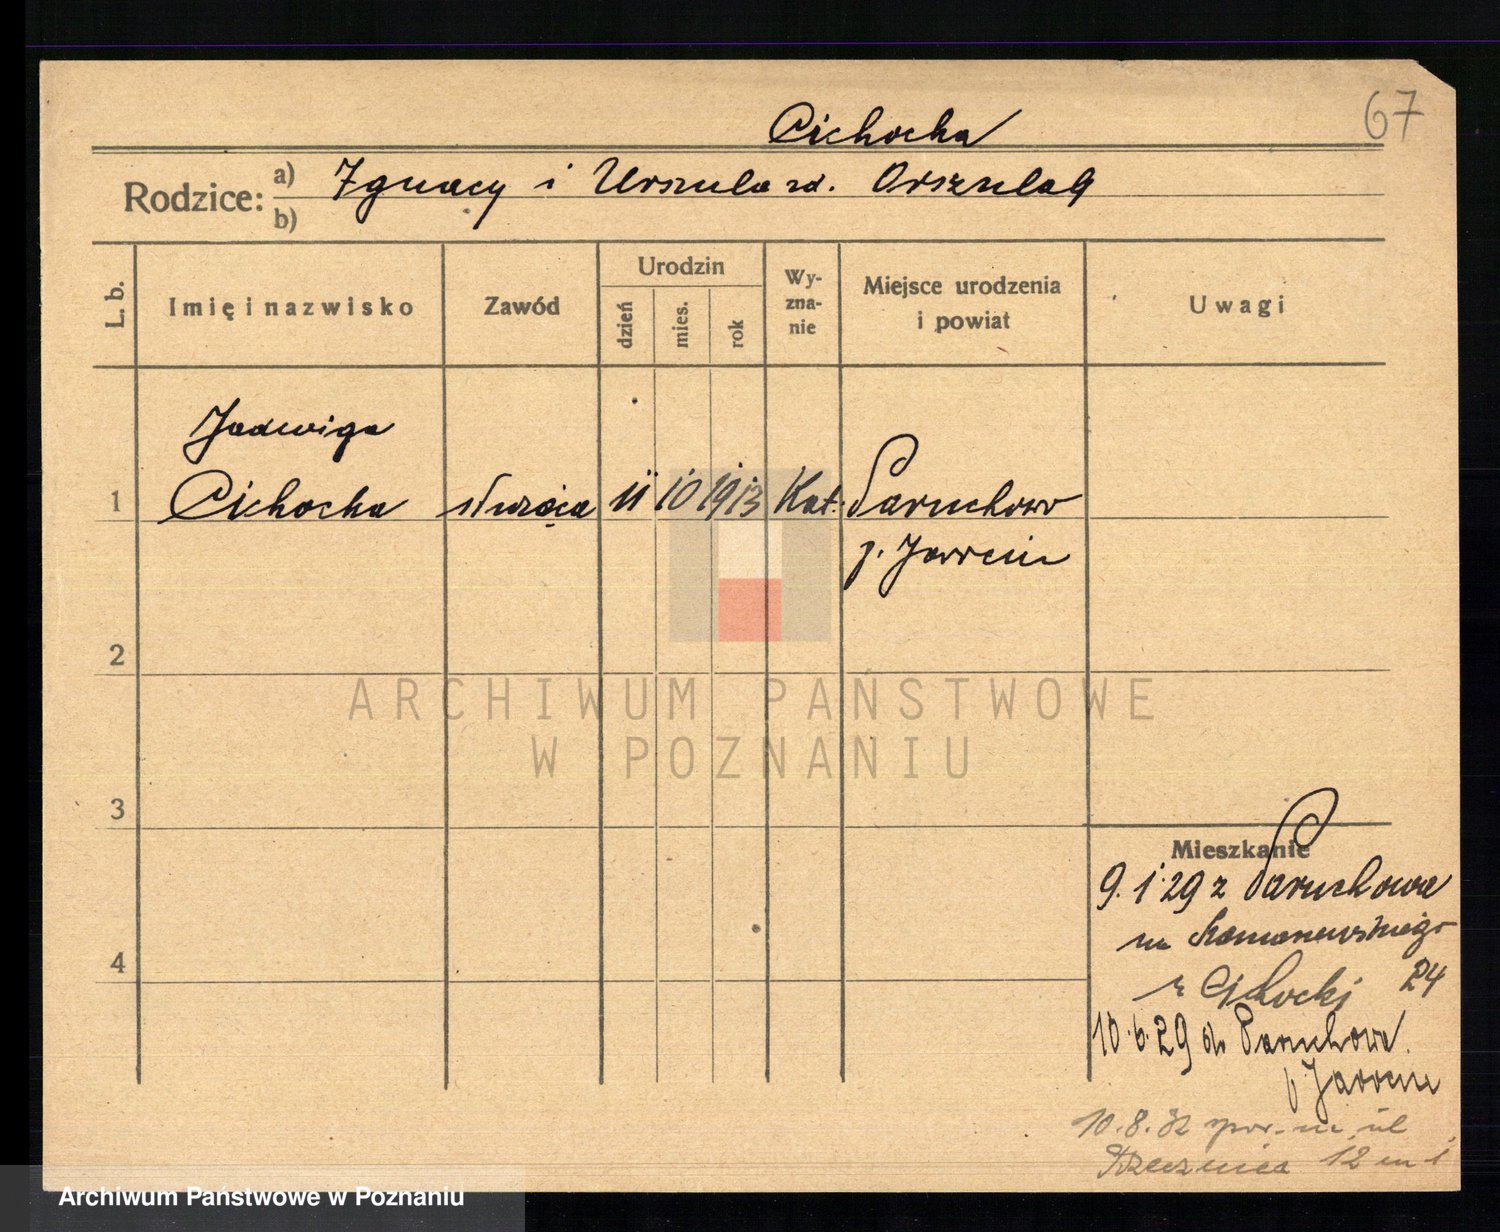 67
Cichocka
Rodzice: a) Ignacy i Urszula zd. Orszulak
b)
L. b.
Imię i nazwisko
Zawód
Urodzin
dzień
mies.
rok
Wy-
zna-
nie
Miejsce urodzenia
i powiat
Uwagi
Jadwiga
1 Cichocka służąca 11 10 1913 Kat. Paruchowo
p. Jarocin
2
3
4
ARCHIWUM PAŃSTWOWE
W POZNANIU
Mieszkanie
9.1.29 z Paruchowa
na Romanowskiego
24
z Cichocki
10.6.29 do Paruchowa.
p Jarocin
10.8.32 na ul
12 m 1
Archiwum Państwowe w Poznaniu